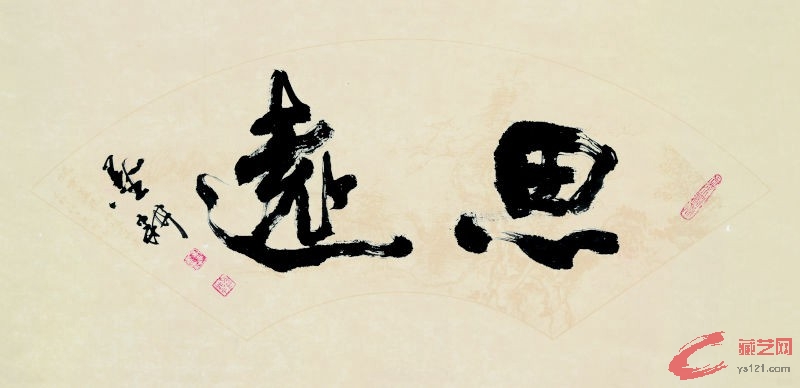 思遠
藏艺网
ys121.com